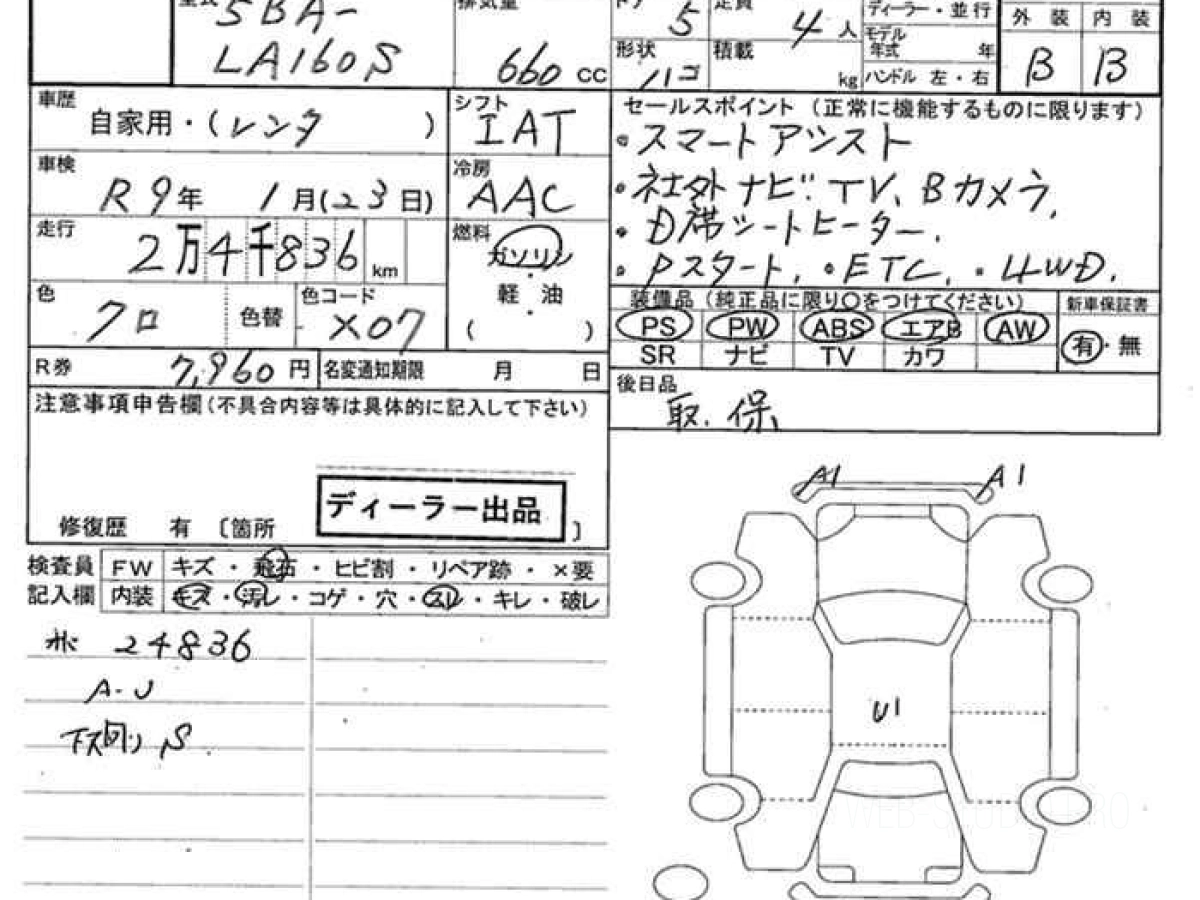 型式 5BA-
LA160S
排気量 660 cc
ドア 5
定員 4 人
形状 ハコ
積載 kg
ディーラー・並行
モデル年式 年
ハンドル 左・右
外装 内装
B B
車歴 自家用・(レンタ )
シフト IAT
車検 R9年 1月(23日)
冷房 AAC
走行 2万4千836 km
燃料 ガソリン
・
軽油
・
( )
色 クロ 色替
色コード X07
R券 7,960 円 名変通知期限 月 日
セールスポイント (正常に機能するものに限ります)
・スマートアシスト
・社外ナビ.TV、Bカメラ,
・D席シートヒーター.
・Pスタート, ・ETC, ・4WD.
装備品 (純正品に限り〇をつけてください)
新車保証書
PS PW ABS エアB AW
SR ナビ TV カワ
有・無
後日品
取.保、
注意事項申告欄(不具合内容等は具体的に記入して下さい)
ディーラー出品
修復歴 有 〔箇所 〕
検査員記入欄
FW キズ・飛石・ヒビ割・リペア跡・×要
内装 キズ・汚レ・コゲ・穴・スレ・キレ・破レ
24836
A-U
下ス回リ S.
A1 A1
U1